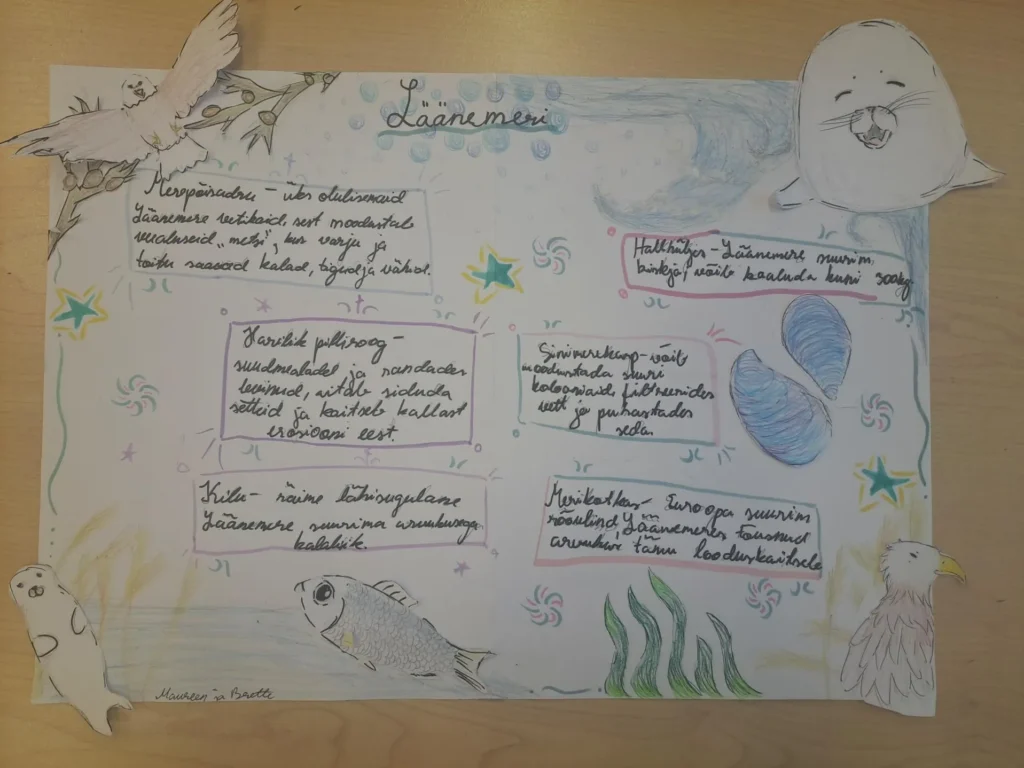 Läänemeri
Merepõisadru – üks olulisemaid
Läänemere vetikaid, sest moodustab
veealuseid „metsi", kus varju ja
toitu saavad kalad, tigud ja vähid.
Hallhüljes – Läänemere suurim
kiskja, võib kaaluda kuni 300kg
Harilik pilliroog –
suudmealadel ja randades
levinud, aitab siduda
setteid ja kaitseb kallast
erosiooni eest.
Sinimerekarp – võib
moodustada suuri
kolooniaid filtreerides
vett ja puhastades
seda.
Kilu – räime lähisugulane
Läänemere, suurima arvukusega
kalaliik.
Merikotkas – Euroopa suurim
röövlind, Läänemeres tõusnud
arvukus tänu looduskaitsele
Maureen ja Berette